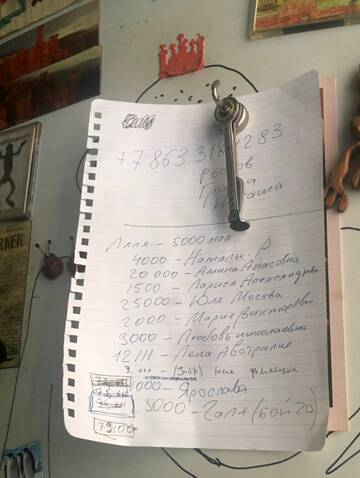 +7 863 318 283
Ростов
Наташа
Лиля - 5000 нал
4000 - Наталья Р
20 000 - Алина Анасовна
1500 - Лариса Александровна
25000 - Юля Москва
2000 - Мария Викторовна
3000 - Любовь Николаевна
12111 - Лена Австралия
3.000 - Юлия
1000 - Ярослава
5000 - Галя
79100